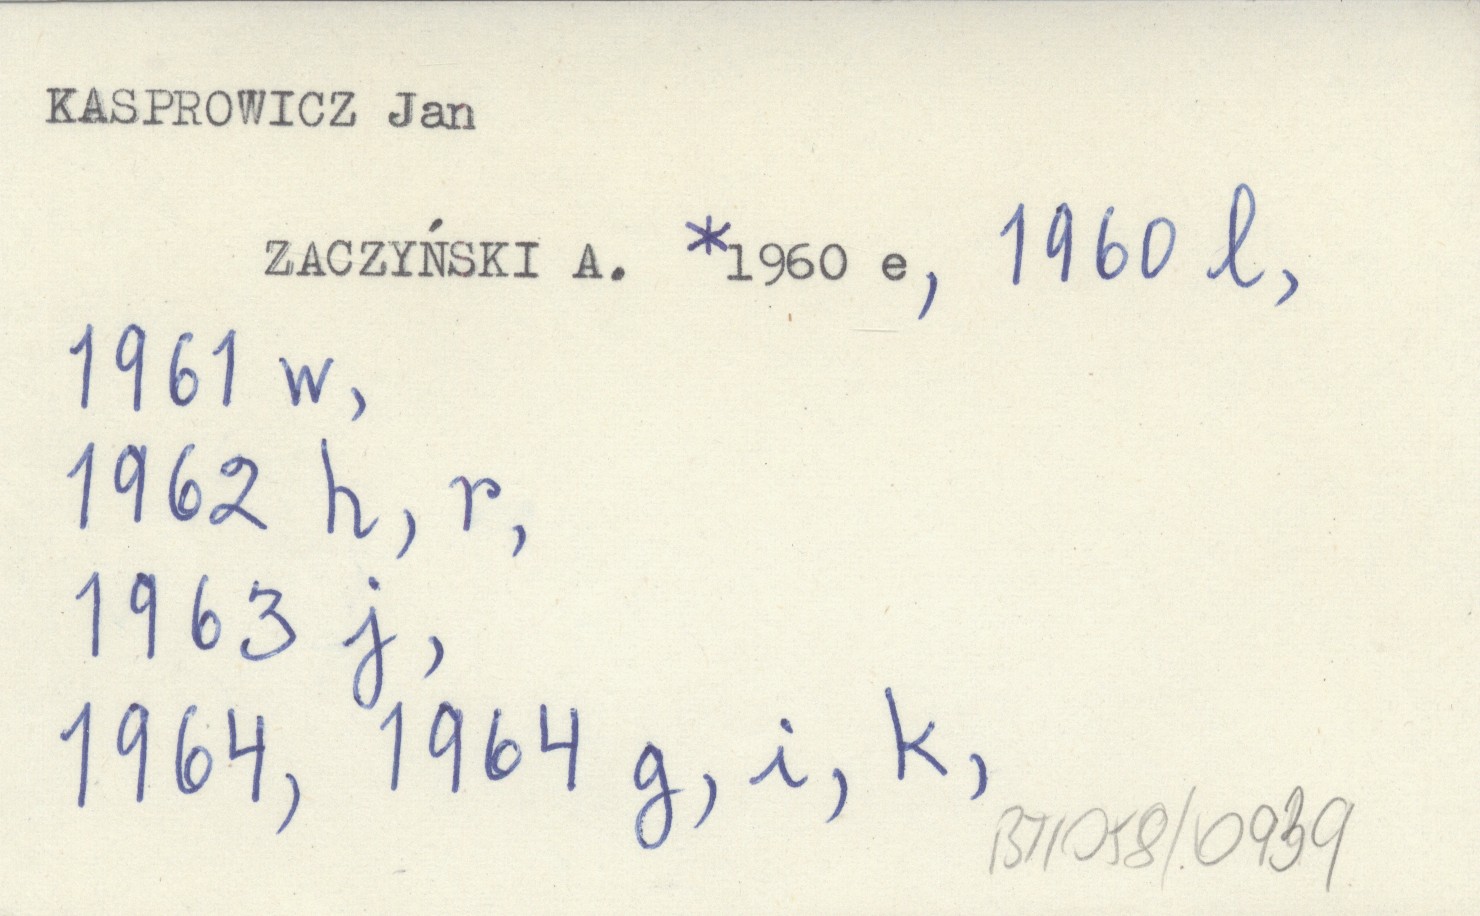 KASPROWICZ Jan
ZACZYŃSKI A. *1960 e, 1960 l,
1961 w,
1962 h, r,
1963 j,
1964, 1964 g, i, k,